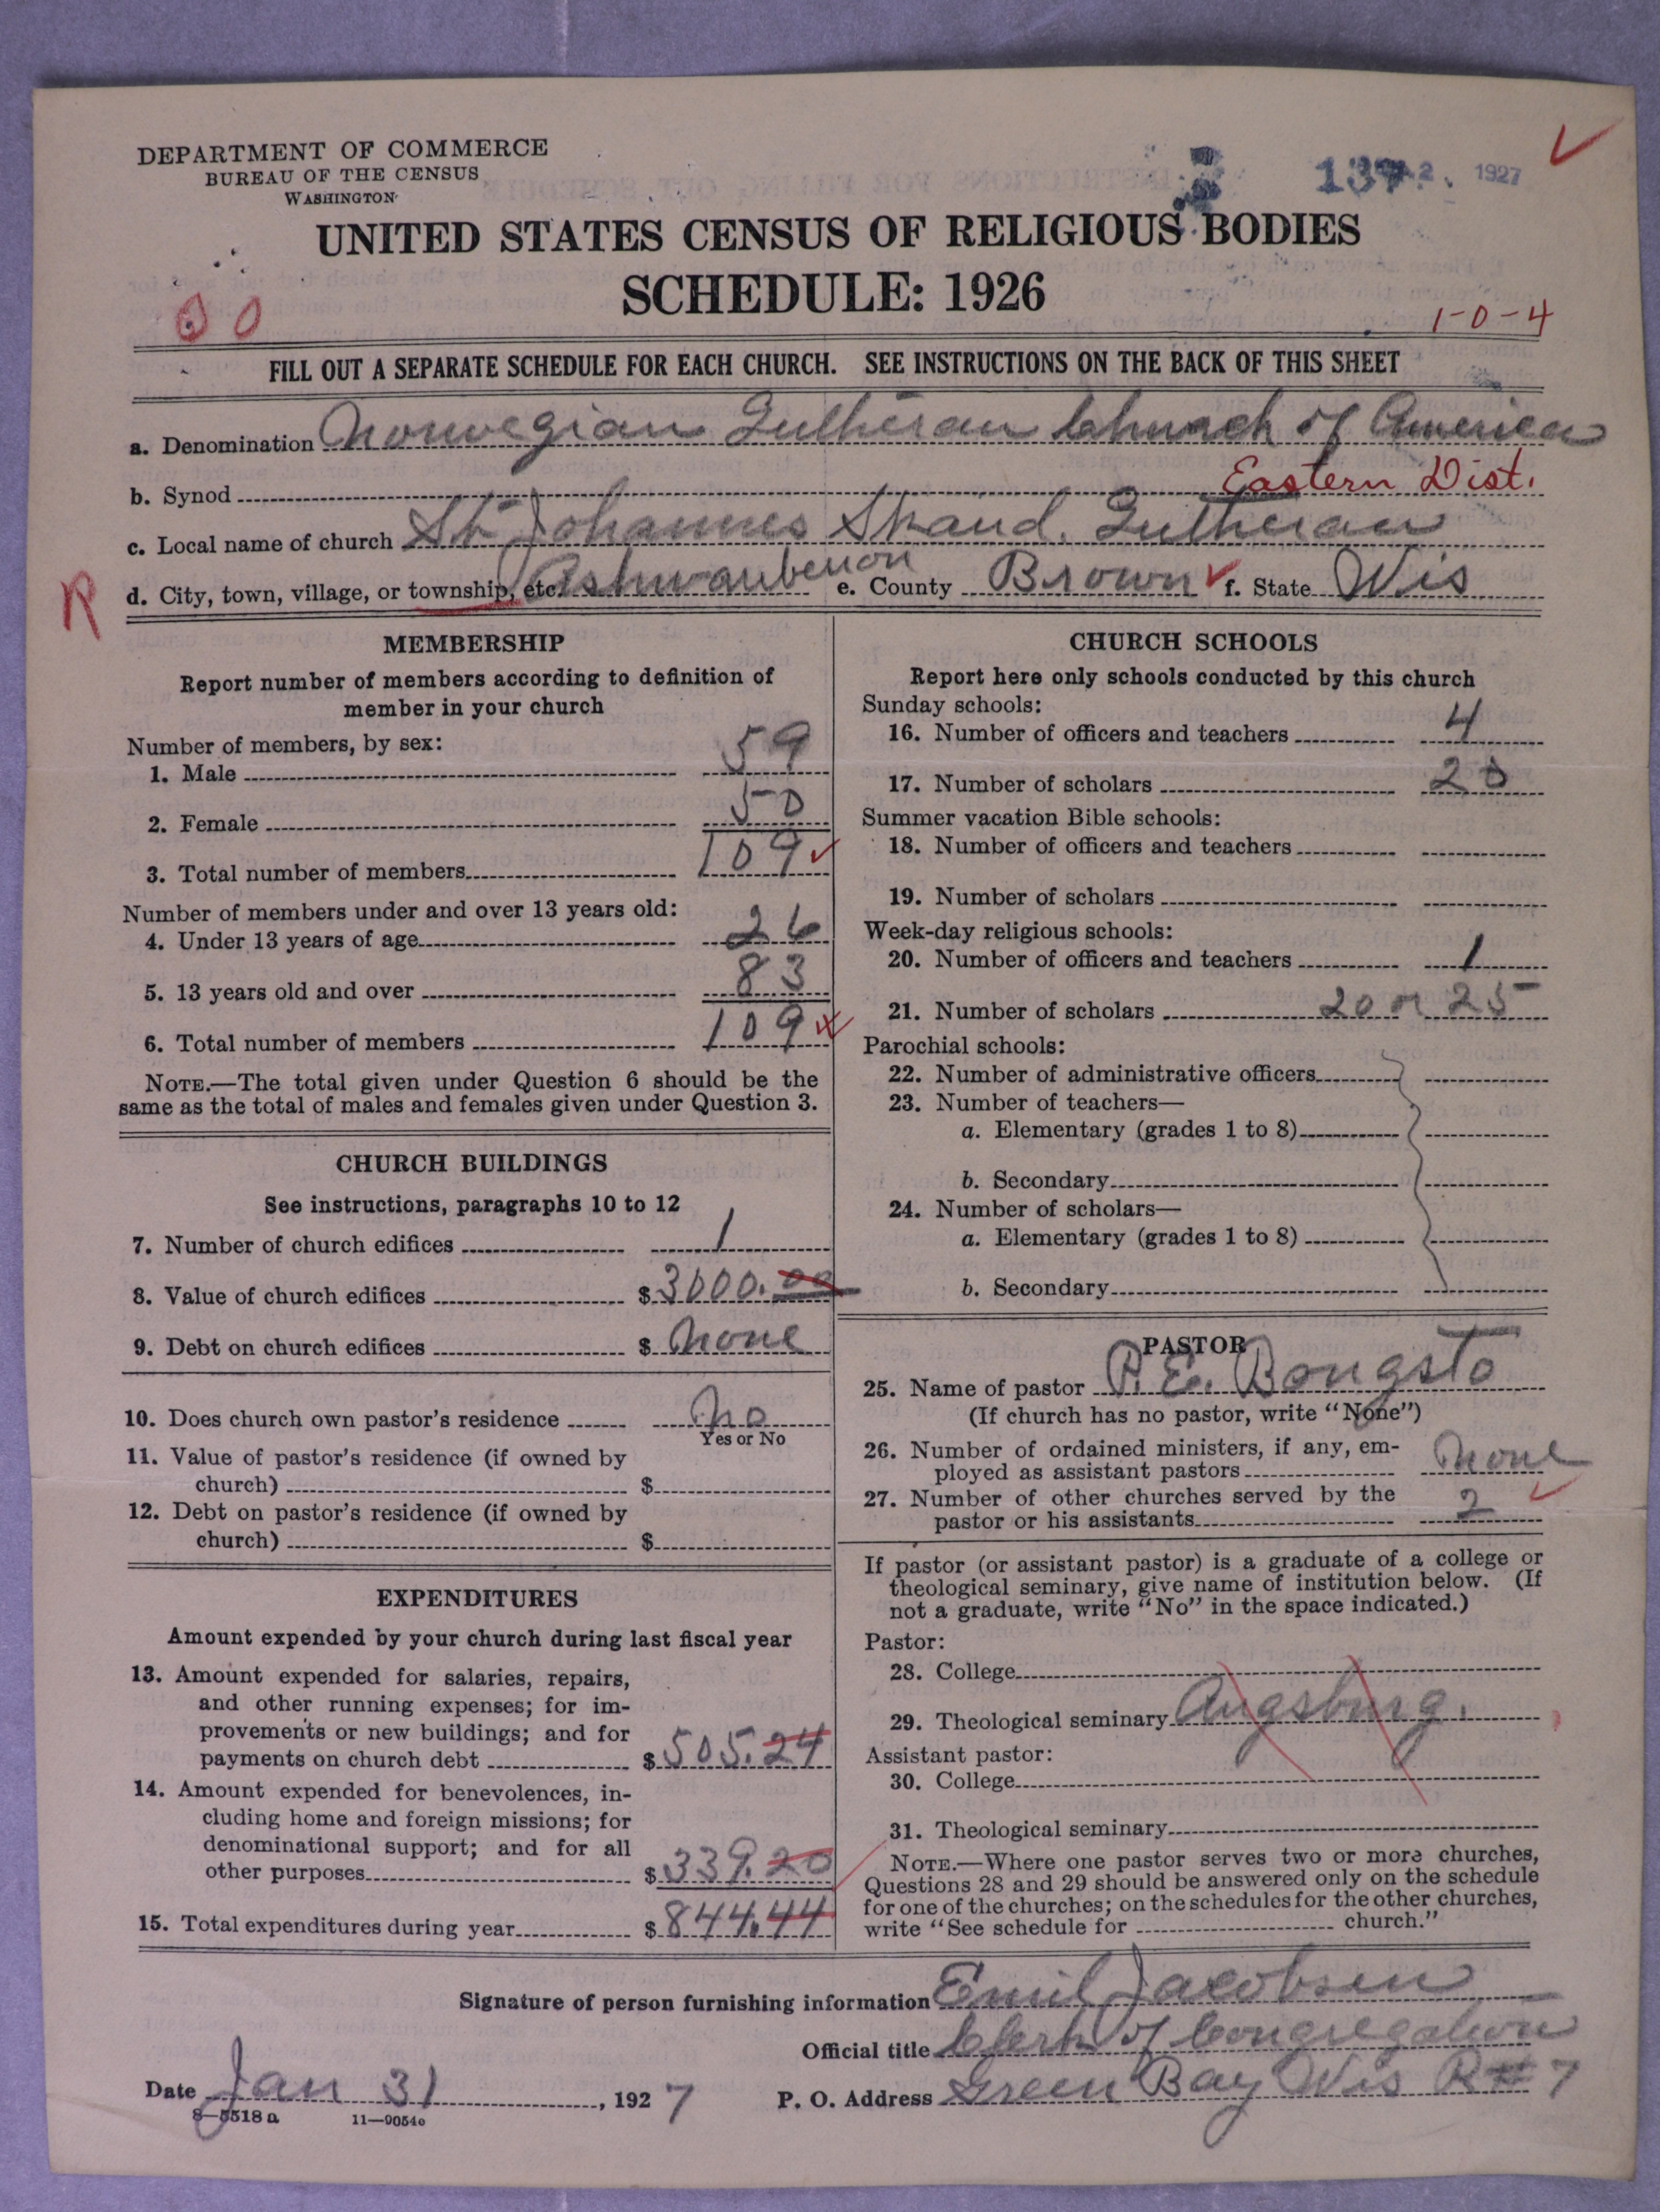 DEPARTMENT OF COMMERCE
BUREAU OF THE CENSUS
WASHINGTON
1927
UNITED STATES CENSUS OF RELIGIOUS BODIES
SCHEDULE: 1926
1-0-4
FILL OUT A SEPARATE SCHEDULE FOR EACH CHURCH. SEE INSTRUCTIONS ON THE BACK OF THIS SHEET
a. Denomination Norwegian Lutheran Church of America
b. Synod Eastern Dist.
c. Local name of church St. Johannes Skand. Lutheran
R
d. City, town, village, or township, etc. Ashwaubenon e. County Brown f. State Wis
MEMBERSHIP
Report number of members according to definition of
member in your church
Number of members, by sex:
1. Male 59
2. Female 50
3. Total number of members 109
Number of members under and over 13 years old:
4. Under 13 years of age 26
5. 13 years old and over 83
6. Total number of members 109
NOTE.—The total given under Question 6 should be the
same as the total of males and females given under Question 3.
CHURCH BUILDINGS
See instructions, paragraphs 10 to 12
7. Number of church edifices 1
8. Value of church edifices $3000.00
9. Debt on church edifices $ None
10. Does church own pastor's residence No
Yes or No
11. Value of pastor's residence (if owned by
church) $
12. Debt on pastor's residence (if owned by
church) $
EXPENDITURES
Amount expended by your church during last fiscal year
13. Amount expended for salaries, repairs,
and other running expenses; for im-
provements or new buildings; and for
payments on church debt $505.24
14. Amount expended for benevolences, in-
cluding home and foreign missions; for
denominational support; and for all
other purposes $339.20
15. Total expenditures during year $844.44
CHURCH SCHOOLS
Report here only schools conducted by this church
Sunday schools:
16. Number of officers and teachers 4
17. Number of scholars 20
Summer vacation Bible schools:
18. Number of officers and teachers
19. Number of scholars
Week-day religious schools:
20. Number of officers and teachers 1
21. Number of scholars 20 or 25
Parochial schools:
22. Number of administrative officers
23. Number of teachers—
a. Elementary (grades 1 to 8)
b. Secondary
24. Number of scholars—
a. Elementary (grades 1 to 8)
b. Secondary
PASTOR
25. Name of pastor P. E. Bongsto
(If church has no pastor, write "None")
26. Number of ordained ministers, if any, em-
ployed as assistant pastors None
27. Number of other churches served by the
pastor or his assistants 2
If pastor (or assistant pastor) is a graduate of a college or
theological seminary, give name of institution below. (If
not a graduate, write "No" in the space indicated.)
Pastor:
28. College
29. Theological seminary Augsburg.
Assistant pastor:
30. College
31. Theological seminary
NOTE.—Where one pastor serves two or more churches,
Questions 28 and 29 should be answered only on the schedule
for one of the churches; on the schedules for the other churches,
write "See schedule for church."
Signature of person furnishing information Emil Jacobsen
Official title Clerk of Congregation
Date Jan 31, 1927 P. O. Address Green Bay Wis R#7
8—5518a 11—9054e